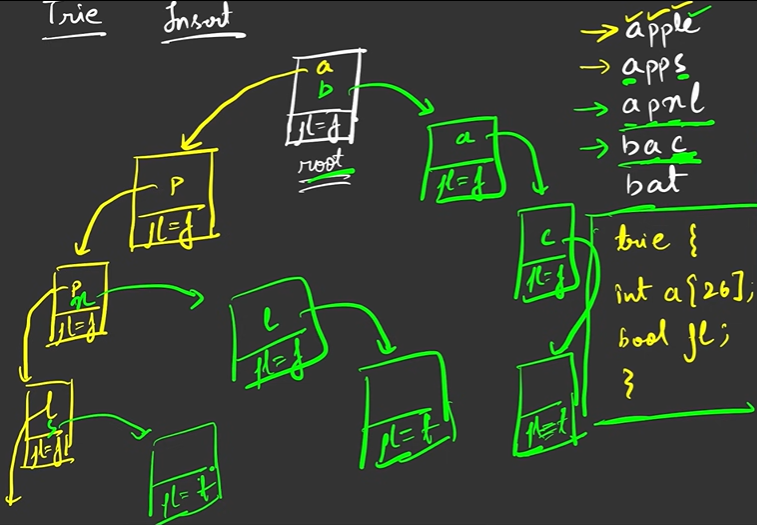 Trie Insert
apple
apps
apnl
bac
bat
a
b
fl=f
root
a
fl=f
p
fl=f
c
fl=f
p
n
fl=f
l
fl=f
l
s
fl=f
fl=t
fl=t
fl=t
trie {
int a[26];
bool fl;
}